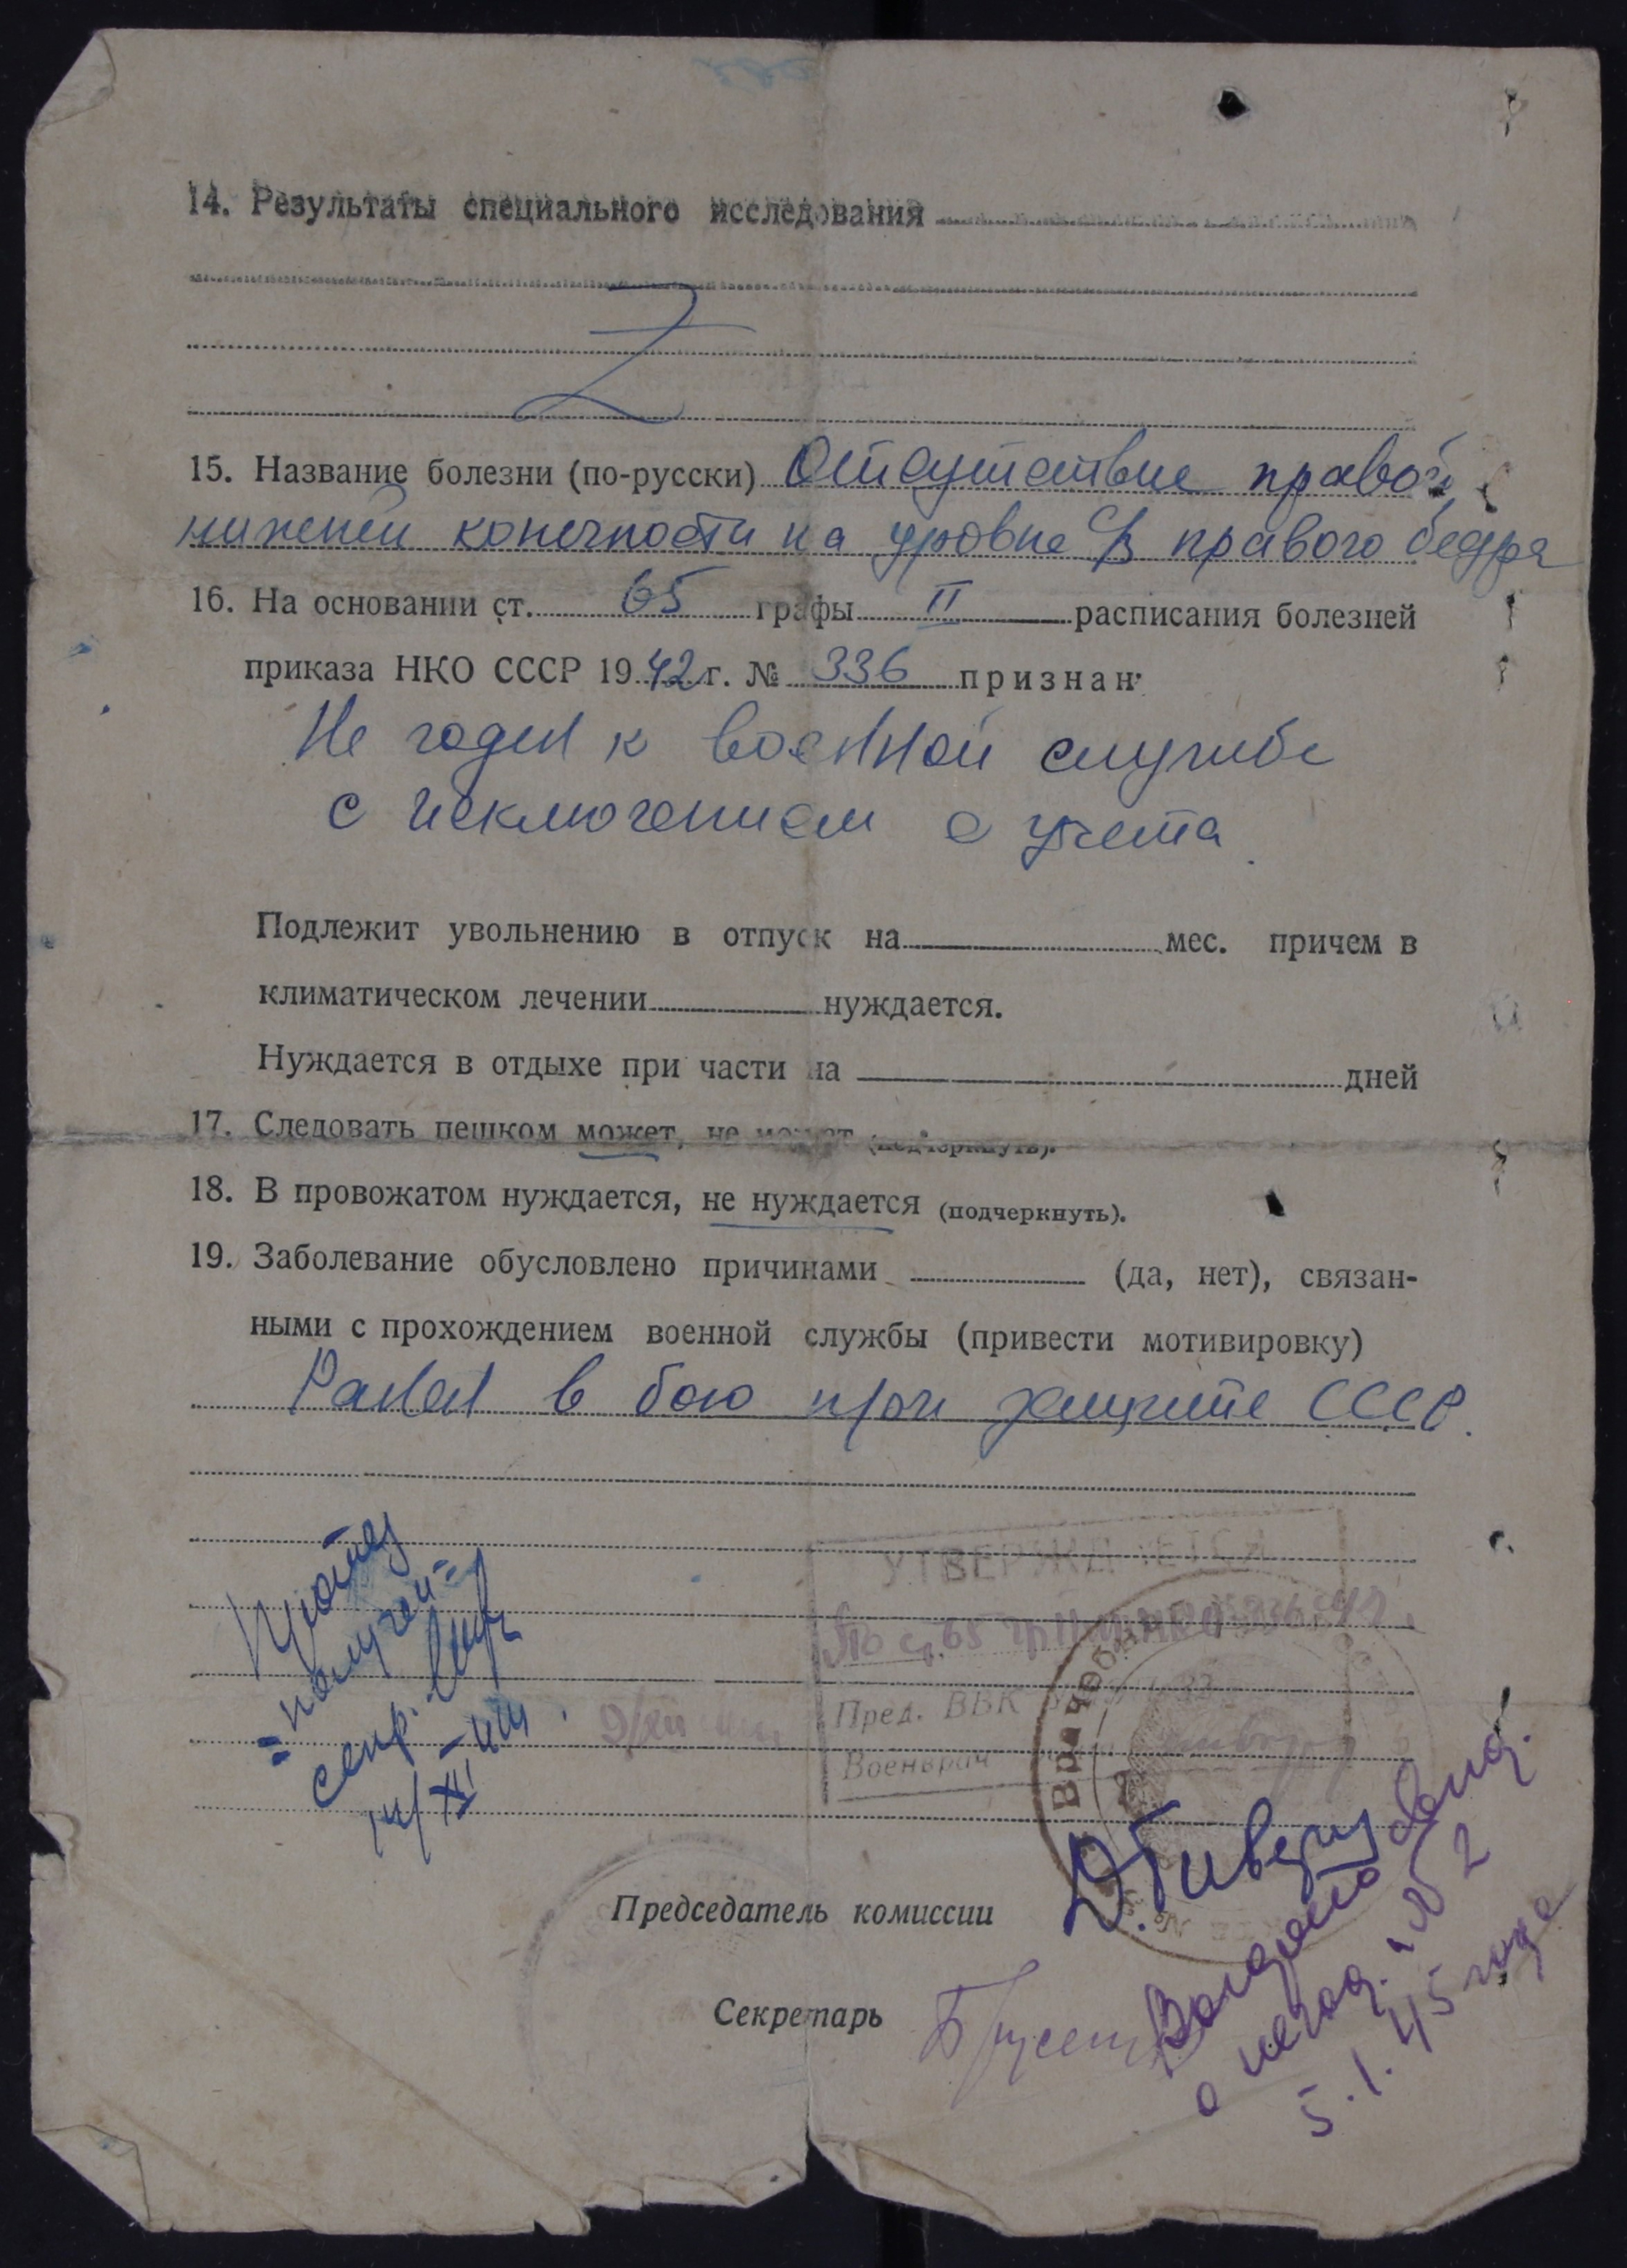 14. Результаты специального исследования
Z
15. Название болезни (по-русски) Отсутствие правой
нижней конечности на уровне ср правого бедра
16. На основании ст. 65 графы II расписания болезней
приказа НКО СССР 1942 г. № 336 признан:
Не годен к военной службе
с исключением с учета.
Подлежит увольнению в отпуск на мес. причем в
климатическом лечении нуждается.
Нуждается в отдыхе при части на дней
17. Следовать пешком может, не может (подчеркнуть).
18. В провожатом нуждается, не нуждается (подчеркнуть).
19. Заболевание обусловлено причинами (да, нет), связан-
ными с прохождением военной службы (привести мотивировку)
Ранен в бою при защите СССР.
УТВЕРЖДАЕТСЯ
По ст. 65 гр II
Пред. ВВК
Военврач
9/XII
Председатель комиссии
Секретарь
№ 2
5.1.45 года